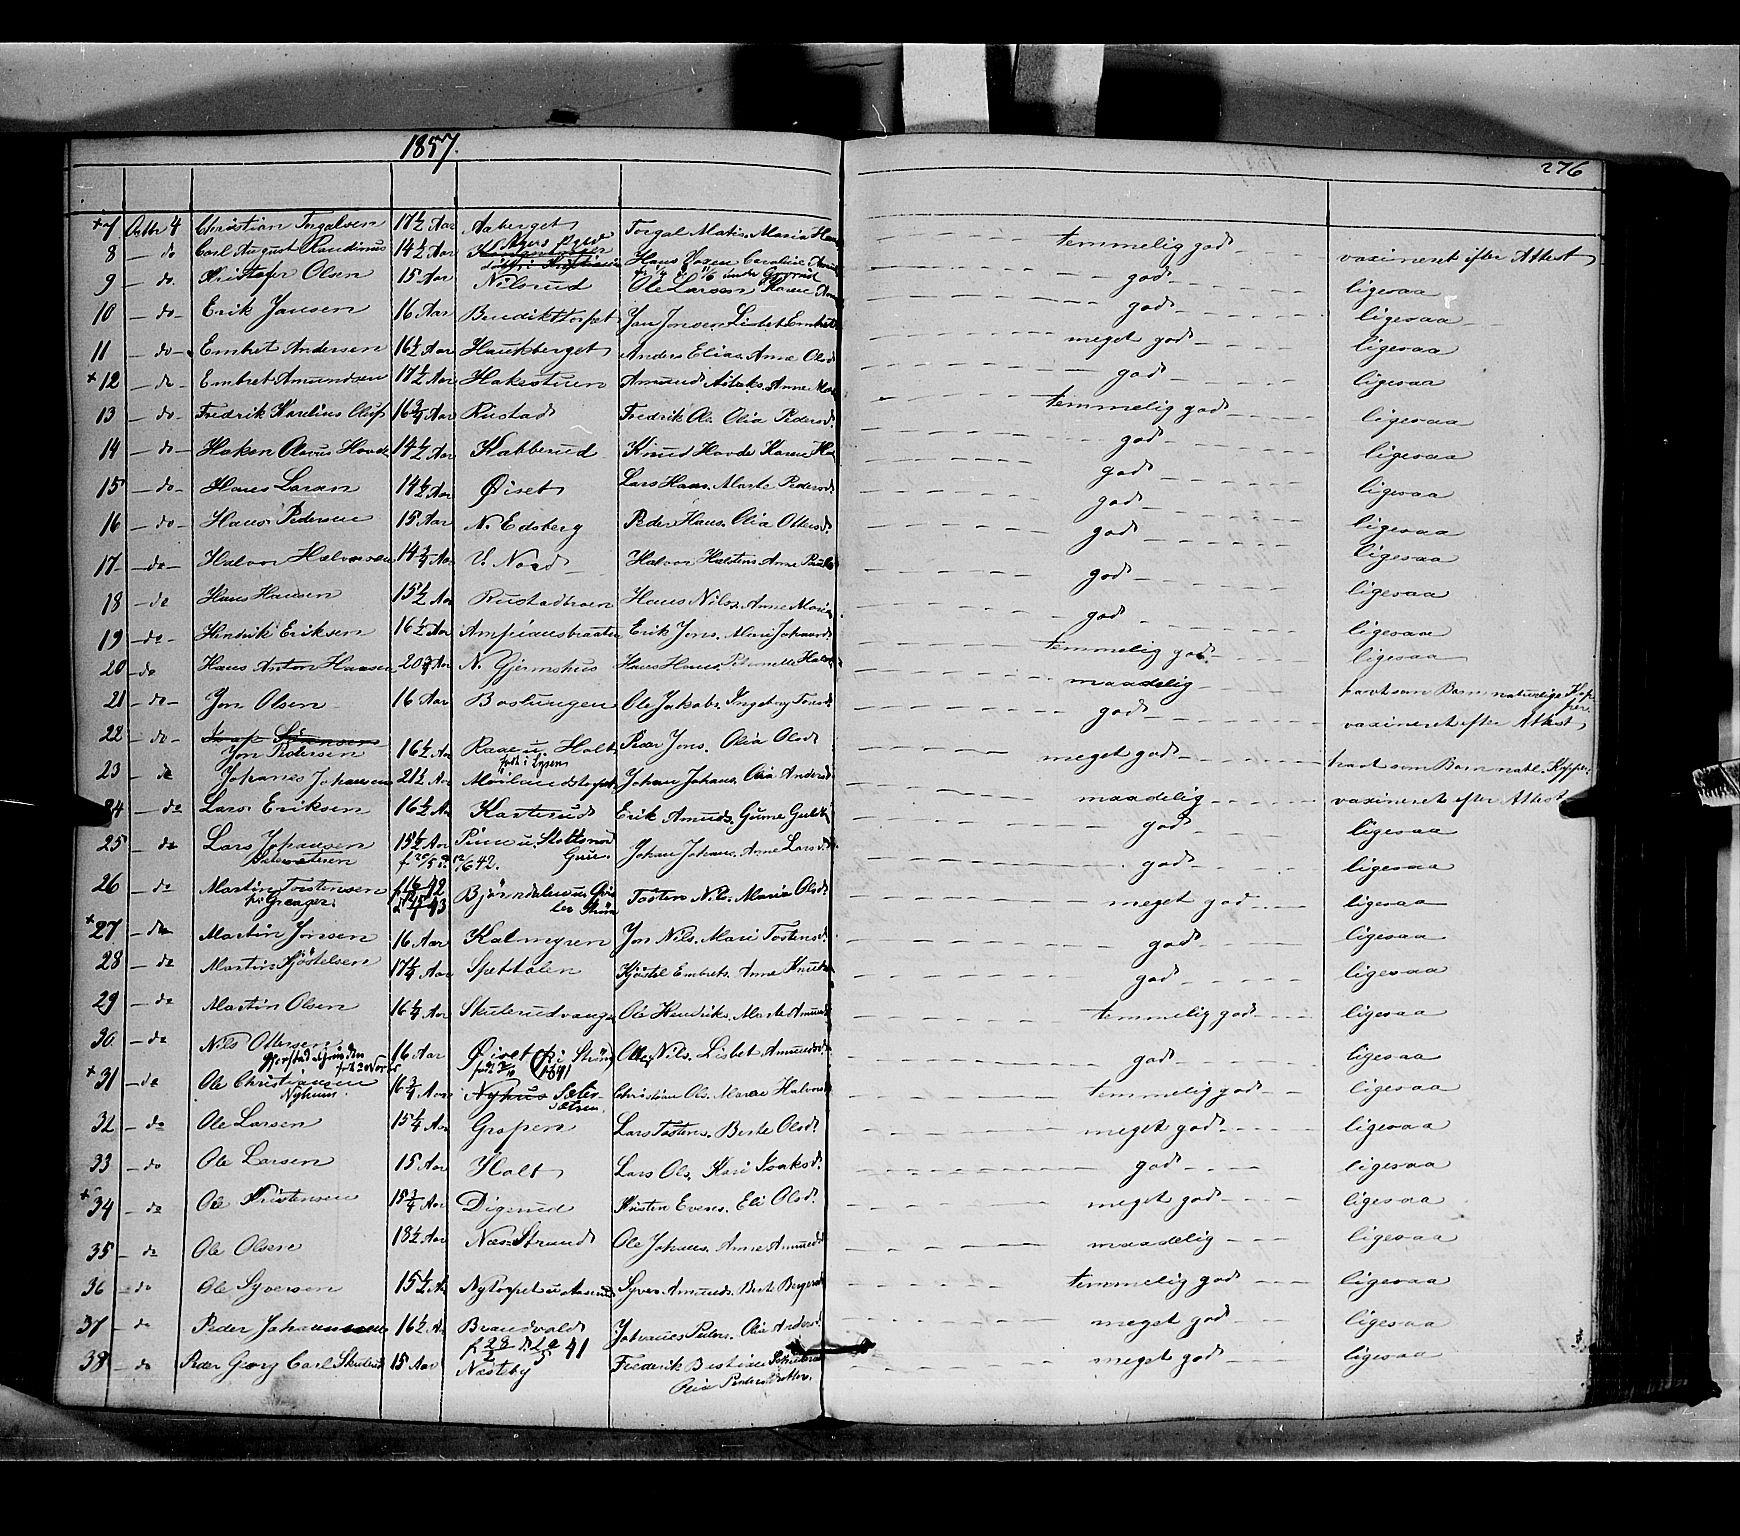 1857.
276
+7 Octbr 4 Christian Torgalsen 17½ Aar Aaberget Torgal Mathis. Maria Hans temmelig god vaxineret efter Attest
8 - do Carl August Paudinus 14½ Aar Hans Caroline god ligesaa
9 - do. Kristofer Olsen 15 Aar Nilsrud Ole Larsen Karen god ligesaa
10 - do - Erik Jansen 16 Aar Bendiktorpet Jan Jonsen Lisbet Embrets meget god ligesaa
11 - do - Embret Andersen 16½ Aar Haukberget Anders Elias. Anne Olsd. god ligesaa
+12 - do - Embret Amundsen 17½ Aar Hakestuen Amund Anne temmelig god ligesaa
13 - do. Fredrik Karelius Olsen 16¾ Aar Rustad Fredrik Ols. Olia Pedersd. god ligesaa
14 - do - Haken Olavus Hovde 14½ Aar Kabberud Knud Hovde Karen god ligesaa
15 - do - Hans Larsen 14½ Aar Øiset Lars Hans. Marte Pedersd. god ligesaa
16 - do - Hans Pedersen 15 Aar N. Edsberg Peder Hans. Olia Ottersd. god ligesaa
17 - do - Halvor Halvorsen 14¾ Aar V. Nord Halvor Halstens. Anne god ligesaa
18 - do Hans Hansen 15½ Aar Rustadbraaten Hans Nils. Anne Maria god ligesaa
19 - do - Hendrik Eriksen 16½ Aar Ampiansbraaten Erik Jons. Mari Johansd. temmelig god ligesaa
20 - do Hans Anton Hansen 20¾ Aar N. Gjermshus Hans Hans. Peternelle Halv maadelig havt som Barn naturlige Kopper
21 - do - Jon Olsen 16 Aar Bostungen Ole Jakobs. Ingeborg Tosd. god vaxineret efter Attest
22 - do - Jon Pedersen 16½ Aar Raae u. Holt Peder Jons. Olia Olsd. meget god havt som Barn natl. Kopper.
født i
23 - do Johanes Johansen 21½ Aar Moilundstorpet Johan Johans. Olia Andersd. maadelig vaxineret efter Attest
24 - do Lars Eriksen 16½ Aar Karterud Erik Amunds. Gunne god ligesaa
25 - do Lars Johansen 15½ Aar Pine u. Slottsmoe Johan Johans. Anne Larsd. god ligesaa
Grue.
26 - do Martin Torstensen Bjørndalen u. Tosten Nils. Maria Olsd. meget god ligesaa
+27 - do Martin Jonsen 16 Aar Kalmyren Jon Nils. Mari Tostensd. god ligesaa
28 - do Martin Kjøstelsen 17¼ Aar Spettalen Kjøstel Embrets. Anne Knuts god ligesaa
29 - do Martin Olsen 16¼ Aar Skulerudvangen Ole Hendriks. Marte Amunds temmelig god ligesaa
30 - do Nils Ottersen 16 Aar Øiset Otter Nils. Lisbet Amundsd. god ligesaa
1841
+31 - do Ole Christiansen 16¾ Aar Nyhus Sæter Christian Ols. Maren Halvorsd temmelig god ligesaa
Nyhuus. Sætren
32 - do Ole Larsen 15¼ Aar Gropen Lars Tostens. Berte Olsd. meget god ligesaa
33 - do Ole Larsen 15 Aar Holt Lars Ols. Kari Isaksd. god ligesaa
+34 - do Ole Kristensen 15¾ Aar Digerud Kristen Evens. Eli Olsd. meget god ligesaa
35 - do Ole Olsen 18½ Aar Næs Strand Ole Johans. Anne Amundsd. maadelig ligesaa
36 - do Ole Syversen 15½ Aar Nytorpet u. Aaserud Syver Amunds. Berte Bergersd. temmelig god ligesaa
37 - do Peder Johannesen 16½ Aar Brandvold Johannes Peders. Olia Andersd. meget god ligesaa
38 - do Peder Georg Carl Skulerud 15 Aar Næsteby Frederik Bastian Skulerud meget god ligesaa
Olia Pedersdatter.